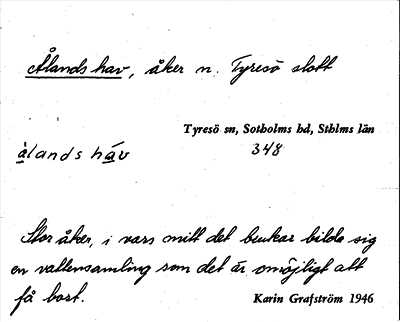 Ålands hav, åker n. Tyresö slott
Tyresö sn, Sotholms hd, Sthlms län
ålands hàv 348
Stor åker, i vars mitt det brukar bilda sig
en vattensamling som det är omöjligt att
få bort. Karin Grafström 1946